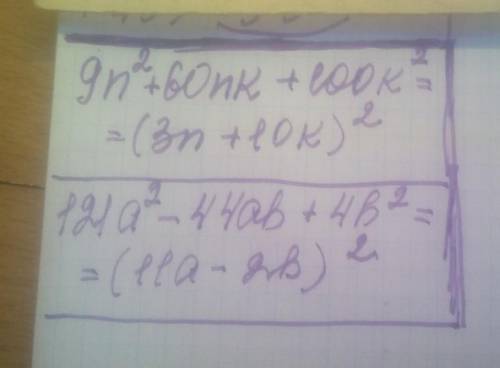 9n²+60nk+100k²=
=(3n+10k)²
121a²-44ab+4b²=
=(11a-2b)²